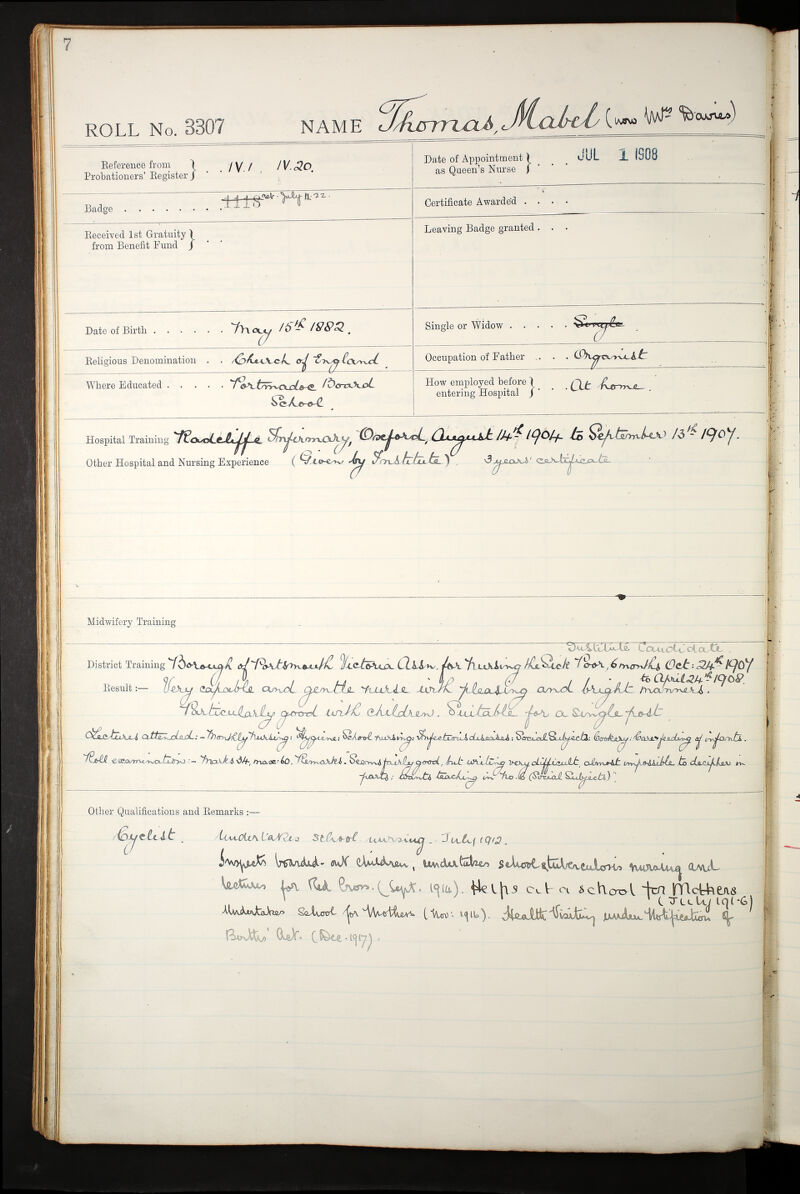 7
ROLL No. 3307 NAME Thomas, Mabel (now Mrs Davies)
Reference from Probationers' Register } . . IV./. IV.20.
Date of Appointment as Queen's Nurse } . . . JUL 1 1908
Badge . . . . . . . . 1118 ret. July 11.22.
Certificate Awarded . . . .
Received 1st Gratuity from Benefit Fund } . .
Leaving Badge granted . . .
Date of Birth . . . . . . May 15th 1882.
Single or Widow . . . . . Single.
Religious Denomination . . Church of England.
Occupation of Father . . . Organist
Where Educated . . . . . Portmadoc Board
School.
How employed before entering Hospital } . . At home.
Hospital Training Radcliffe Infirmary, Oxford, August 14th 1904 to September 13th 1907.
Other Hospital and Nursing Experience (Given by Institute). 3 years' certificate
Midwifery Training
Institute Candidate.
District Training Borough of Portsmouth Victoria Assn. for Nursing the Sick Poor, 6 months Oct: 24th 1907
to April 24th 1908.
Result:— Very capable and gentle nurse with pleasing and bright manners.
Particularly good with children. Suitable for a single post.
Lectures attended:- Monthly Nursing; Hygiene; School nursing; Infectious diseases; Social Subjects; Cookery; Care & feeding of infants.
Roll examination:- Marks 34, max: 60. Remarks. Seems fairly good, but writing very difficult, almost impossible to decipher in
parts: wants teaching in No. 6 (Social Subjects).
Other Qualifications and Remarks :—
Cyclist. Undertakes school nursing. July 1912.
Inspects boarded-out children, undertakes school & tuberculosis nursing and
lectures for Red Cross. (Sept. 1914). Helps at a school for Mothers
(July 1916)
Undertakes School for Mothers (Nov: 1916). Health Visiting under Notification of
Births' Act. (Dec. 1917).